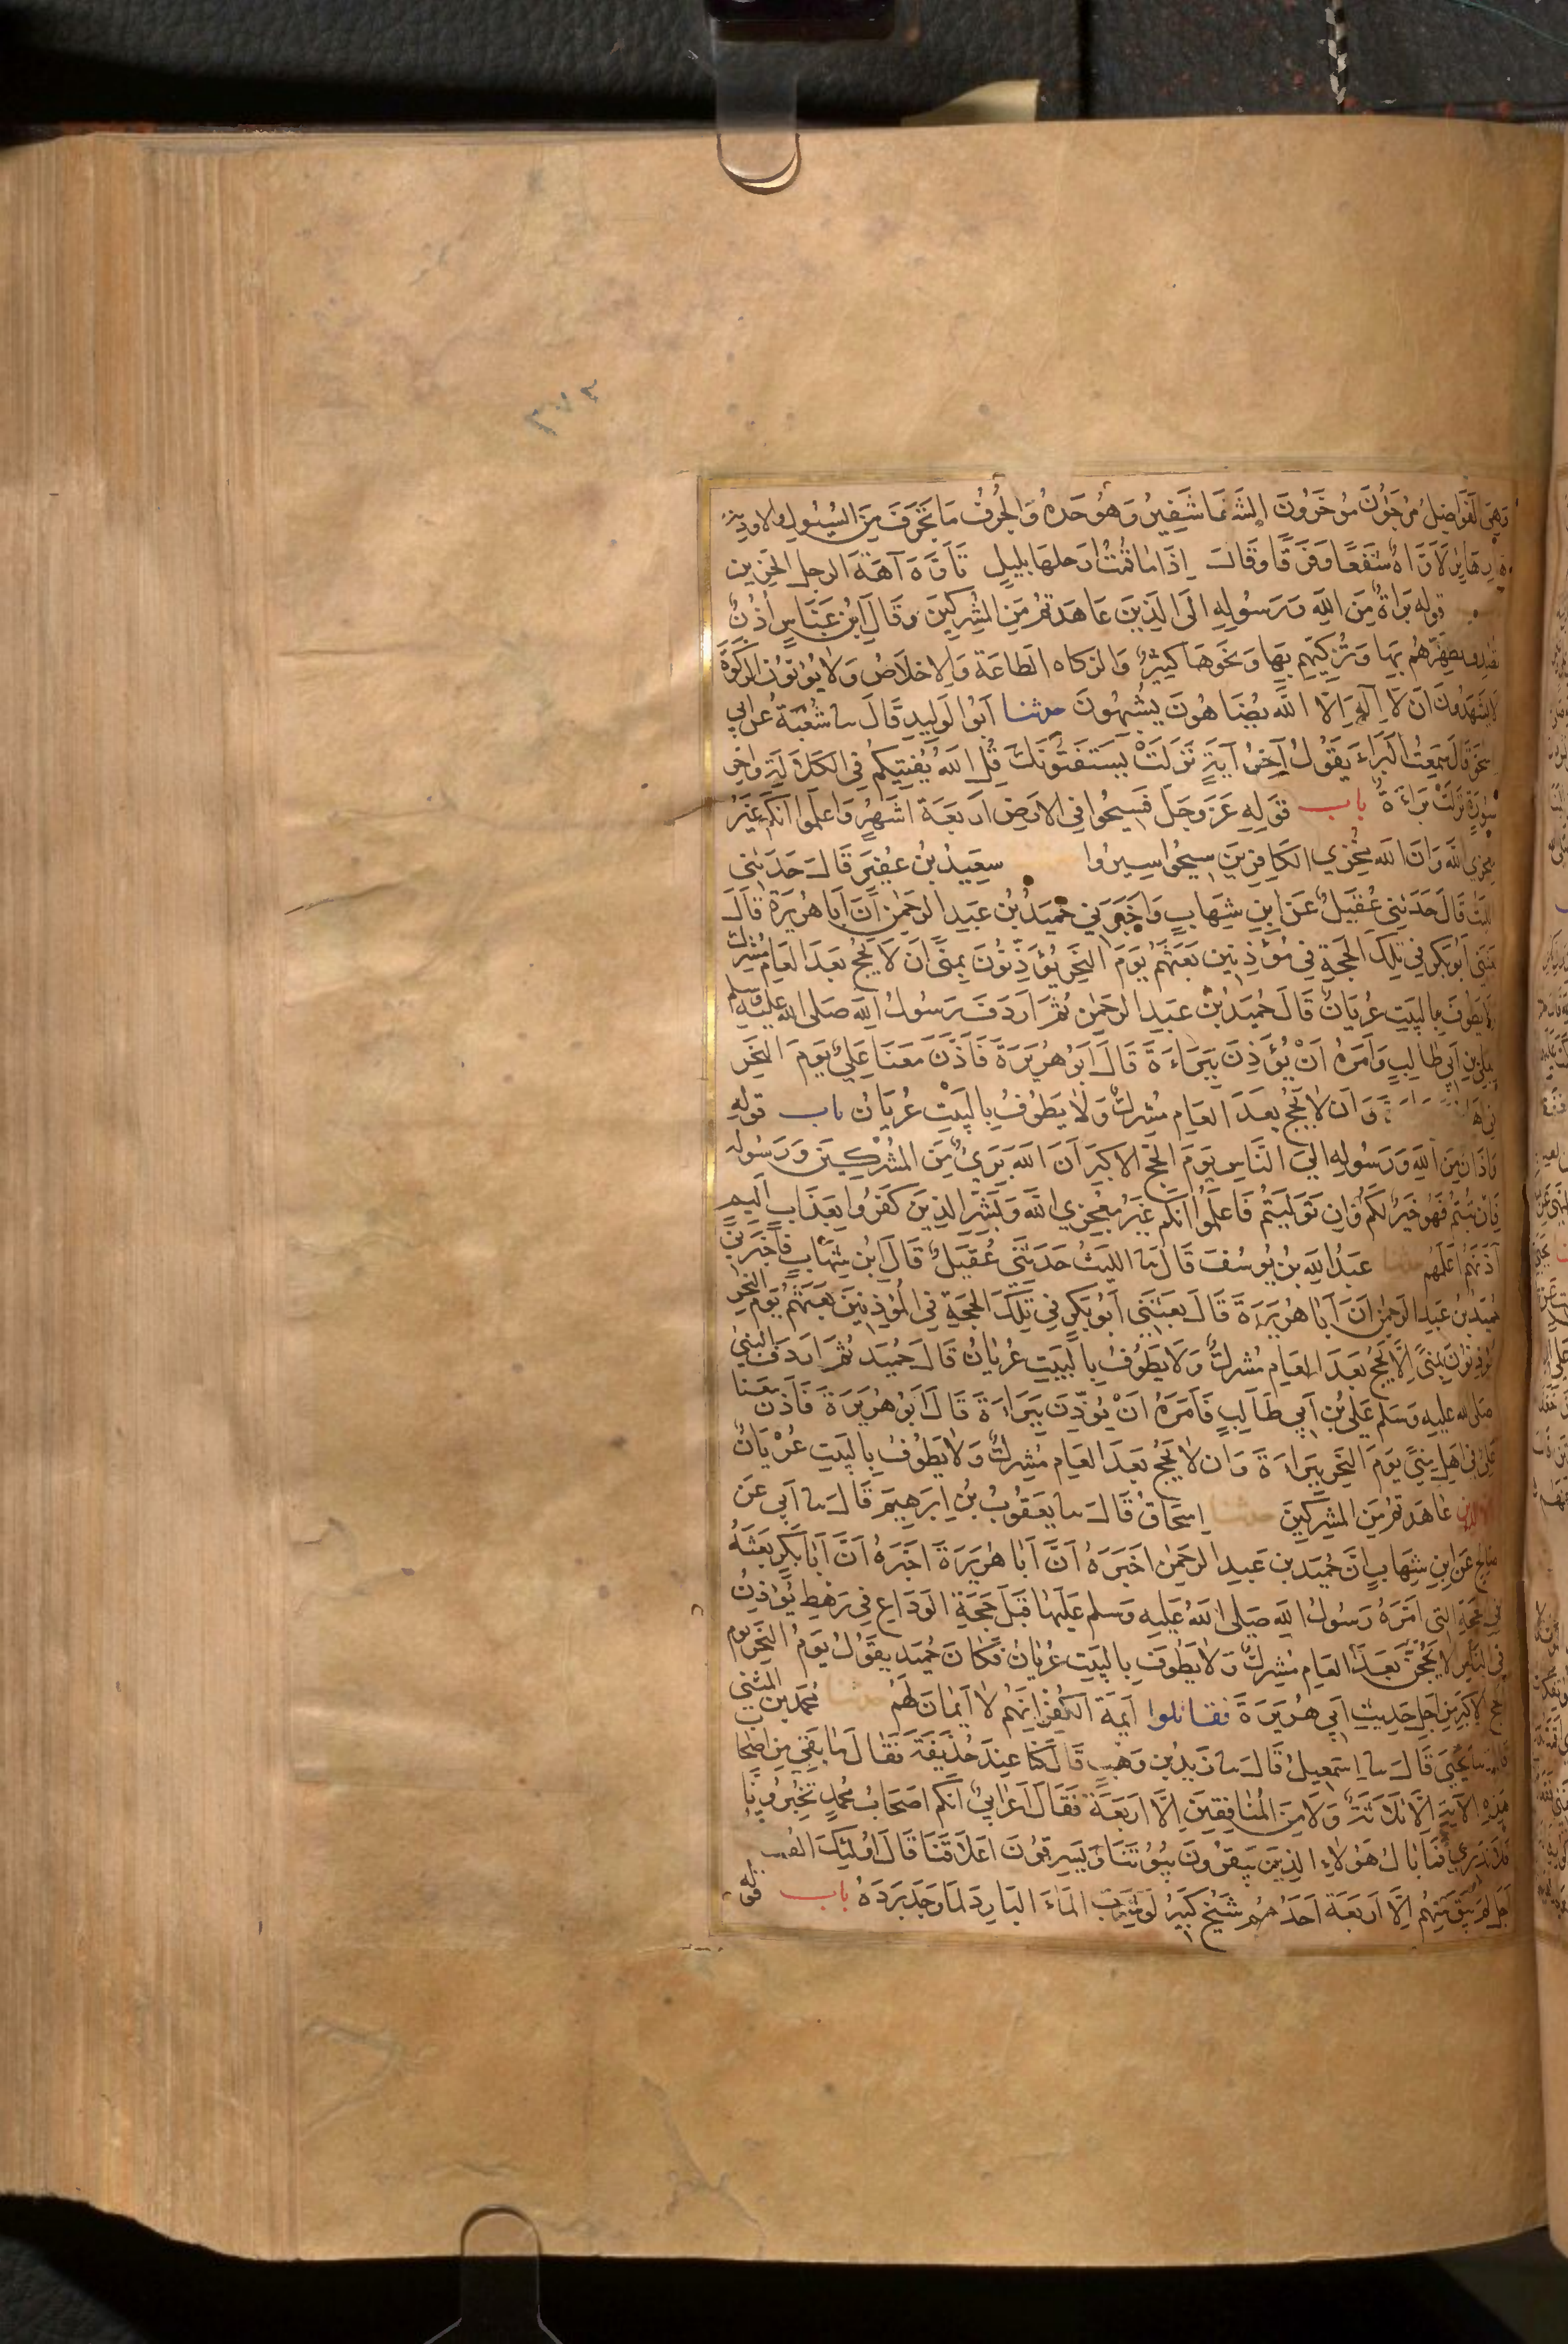 ٣٧٣
وهي الفواضل مرجون مؤخرون الشفا شفير وهو حده والجرف ما تجرف من السيول والاودية
هار هاير لاواه شفعا وفرقا وقال اذا ما قمت ارحلها بليل تاوه آهة الرجل الحزين
قوله براة من الله ورسوله الى الذين عاهدتم من المشركين وقال ابن عباس اذن
يصدق تطهرهم بها وتزكيهم بها ونحوها كثير والزكاه الطاعة والاخلاص ولا يؤتون الزكوة
لا يشهدون ان لا اله الا الله يضاهون يشبهون حدثنا ابو الوليد قال نا شعبة عن ابي
اسحق قال سمعت البراء يقول آخر آية نزلت يستفتونك قل الله يفتيكم في الكلالة واخر
سورة نزلت براءة باب قوله عز وجل فسيحوا في الارض اربعة اشهر واعلموا انكم غير
معجزي الله وان الله مخزي الكافرين سيحوا سيروا سعيد بن عفير قال حدثني
الليث قال حدثني عقيل عن ابن شهاب واخبرني حميد بن عبد الرحمن ان ابا هريرة قال
بعثني ابو بكر في تلك الحجة في مؤذنين بعثهم يوم النحر يؤذنون بمنى ان لا يحج بعد العام مشرك
ولا يطوف بالبيت عريان قال حميد بن عبد الرحمن ثم اردف رسول الله صلى الله عليه وسلم
بعلي بن ابي طالب وامره ان يؤذن ببراءة قال ابو هريرة فاذن معنا علي يوم النحر
في وان لا يحج بعد العام مشرك ولا يطوف بالبيت عريان باب قوله
واذان من الله ورسوله الى الناس يوم الحج الاكبر ان الله بريء من المشركين ورسوله
فان تبتم فهو خير لكم وان توليتم فاعلموا انكم غير معجزي الله وبشر الذين كفروا بعذاب اليم
آذنهم اعلمهم حدثنا عبد الله بن يوسف قال نا الليث حدثني عقيل قال ابن شهاب فاخبرني
حميد بن عبد الرحمن ان ابا هريرة قال بعثني ابو بكر في تلك الحجة في المؤذنين بعثهم يوم النحر
يؤذنون بمنى الا يحج بعد العام مشرك ولا يطوف بالبيت عريان قال حميد ثم اردف النبي
صلى الله عليه وسلم علي بن ابي طالب فامره ان يؤذن ببراءة قال ابو هريرة فاذن معنا
علي في اهل منى يوم النحر ببراءة وان لا يحج بعد العام مشرك ولا يطوف بالبيت عريان
الا الذين عاهدتم من المشركين حدثنا اسحاق قال نا يعقوب بن ابرهيم قال نا ابي عن
صالح عن ابن شهاب ان حميد بن عبد الرحمن اخبره ان ابا هريرة اخبره ان ابا بكر بعثه
في الحجة التي امره رسول الله صلى الله عليه وسلم عليها قبل حجة الوداع في رهط يؤذن
في الناس لا يحجن بعد العام مشرك ولا يطوف بالبيت عريان فكان حميد يقول يوم النحر يوم
الحج الاكبر من اجل حديث ابي هريرة فقاتلوا ايمة الكفر انهم لا ايمان لهم حدثنا محمد بن المثنى
قال نا يحيى قال نا اسمعيل قال نا زيد بن وهب قال كنا عند حذيفة فقال ما بقي من اصحاب
هذه الاية الا ثلاثة ولا من المنافقين الا اربعة فقال اعرابي انكم اصحاب محمد تخبرونا
فلا ندري فما بال هولاء الذين يبقرون بيوتنا ويسرقون اعلاقنا قال اولئك الفساق
اجل لم يبق منهم الا اربعة احدهم شيخ كبير لو شرب الماء البارد لما وجد برده باب قوله